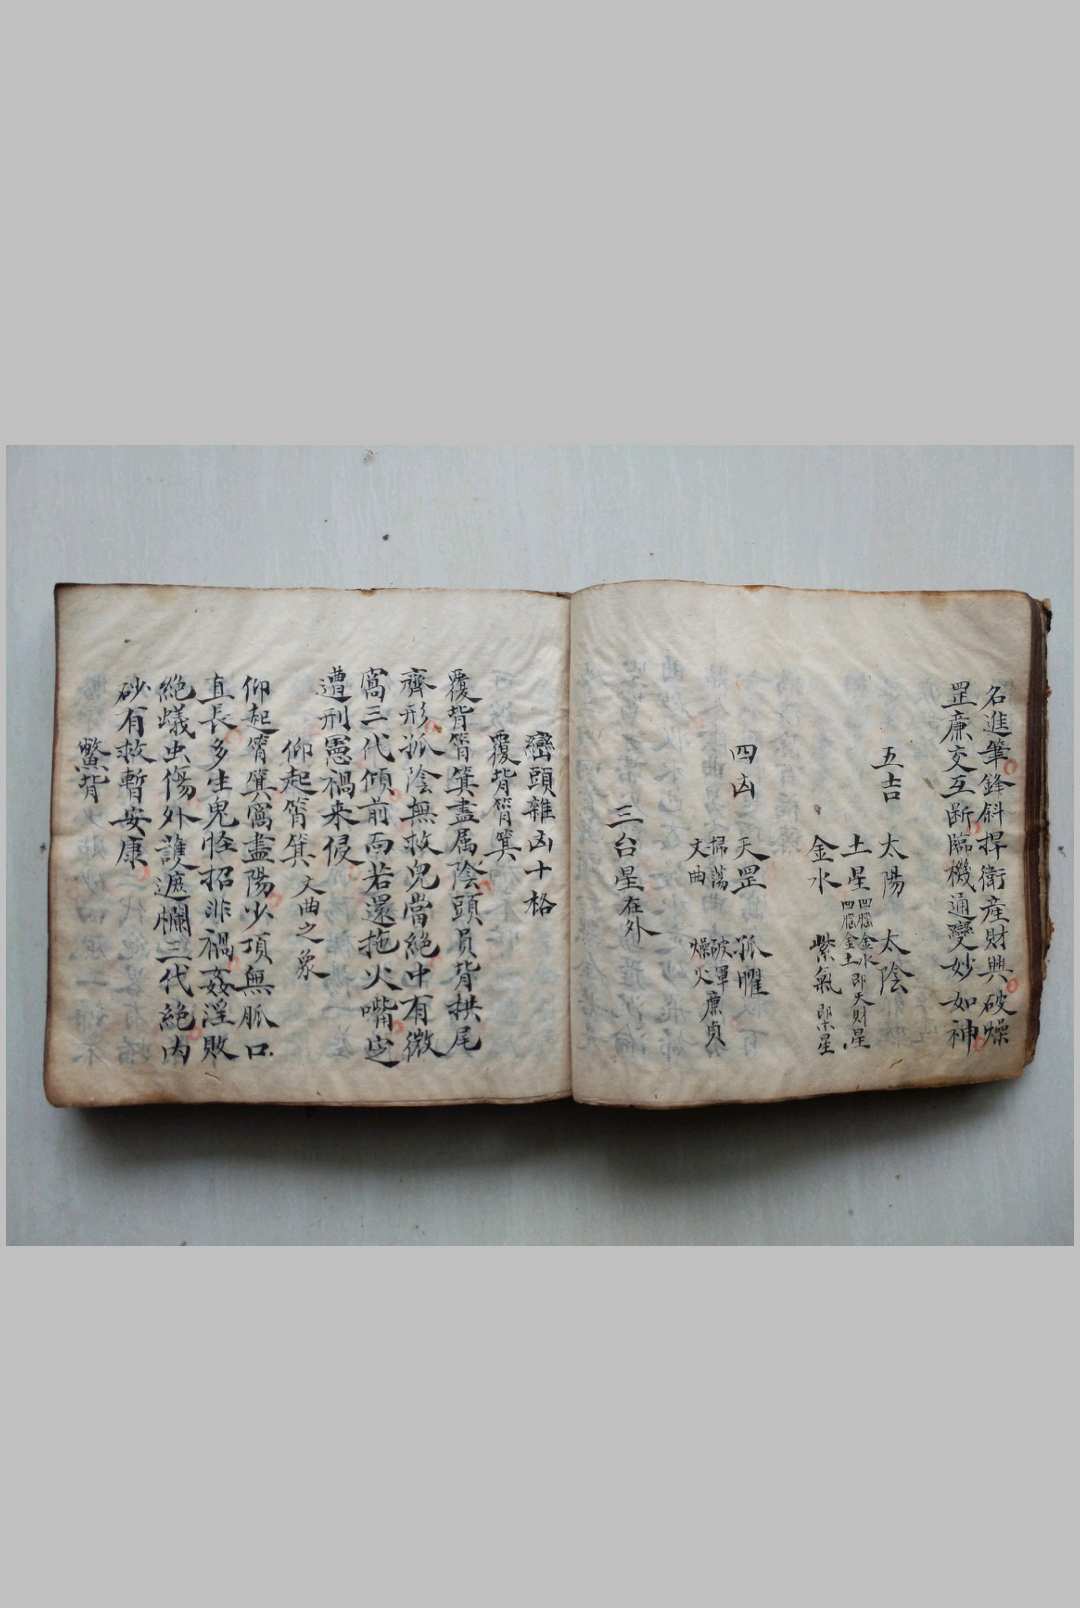 名進筆鋒斜捍衛産財興破燥
罡廉交互断臨機通變妙如神
五吉 太陽 太陰
土星 四腦金水即天財星
四腦金土
金水 紫氣 即栾星
四凶 天罡 孤曜
掃蕩 破軍 廉貞
文曲 燥火
三台星在外
巒頭雜凶十格
覆背筲箕
覆背筲箕盡属陰頭員背拱尾
齊形孤陰無救児當絶中有微
窩三代傾前面若還拖火嘴
遭刑憲禍来侵
仰起筲箕 文曲之象
仰起筲箕窩盡陽少頂無脈口
直長多生鬼怪招非禍姦淫敗
絶蟻虫傷外護遮欄三代絶内
砂有救暫安康
鱉背